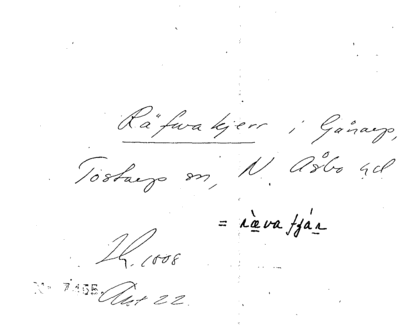 Räfwakjerr i Gånarp,
Tostarp sn, N. Åsbo hd
= ràva tján
Lh. 1008
No 7465
Ant 22